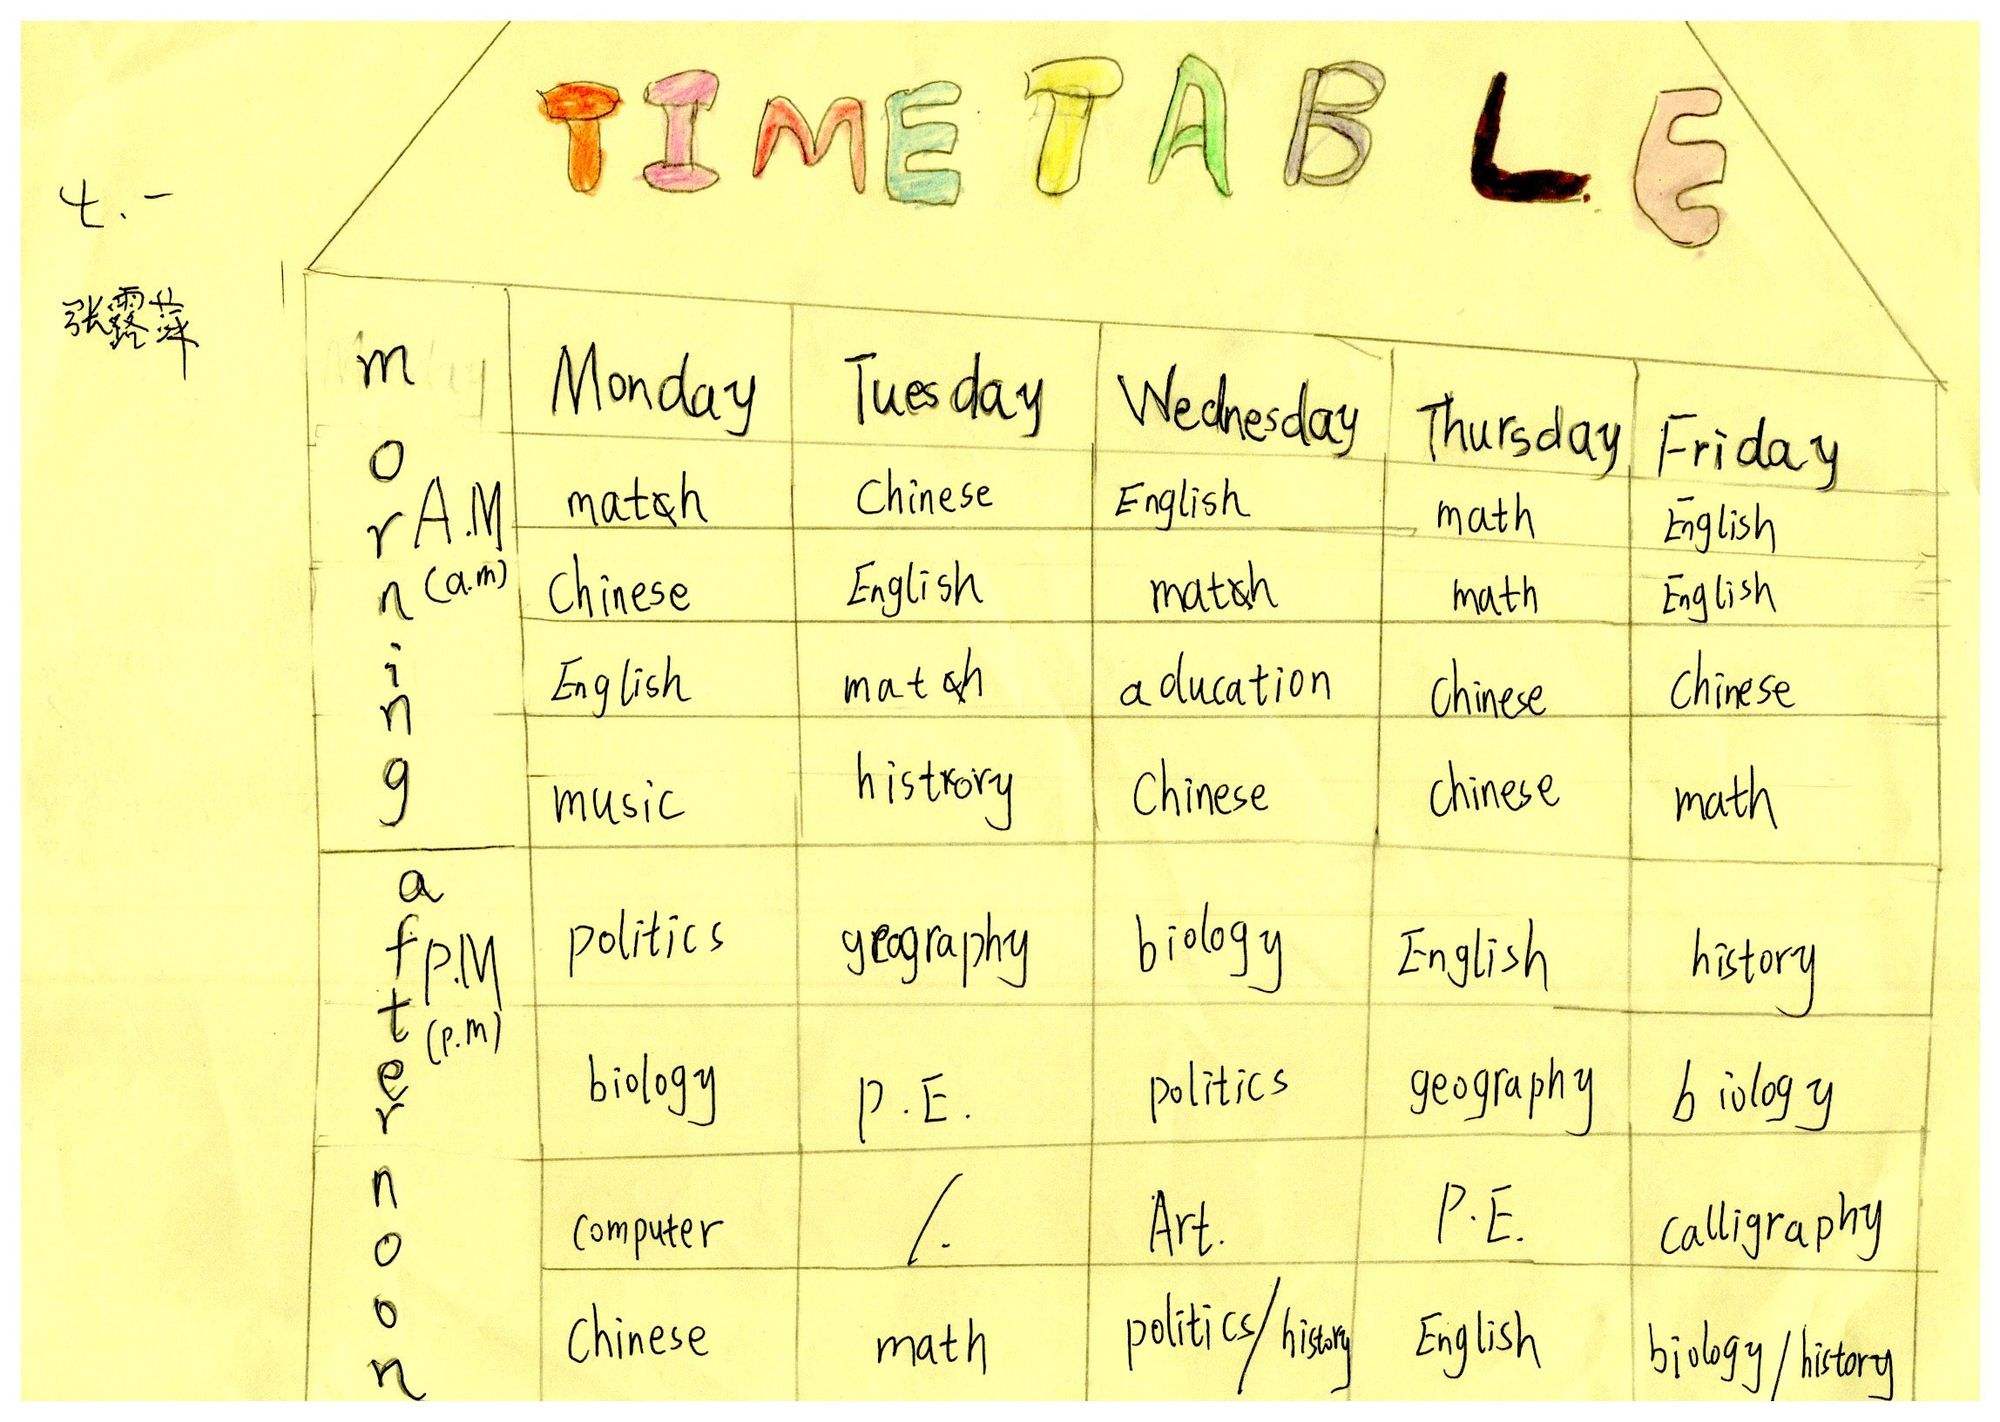 TIME TABLE
七.一
张露萍
morning A.M (a.m)
Monday Tuesday Wednesday Thursday Friday
math Chinese English math English
Chinese English math math English
English math aducation Chinese Chinese
music history Chinese Chinese math
afternoon P.M (p.m)
politics geography biology English history
biology P.E. politics geography biology
computer /. Art. P.E. calligraphy
Chinese math politics/history English biology/history